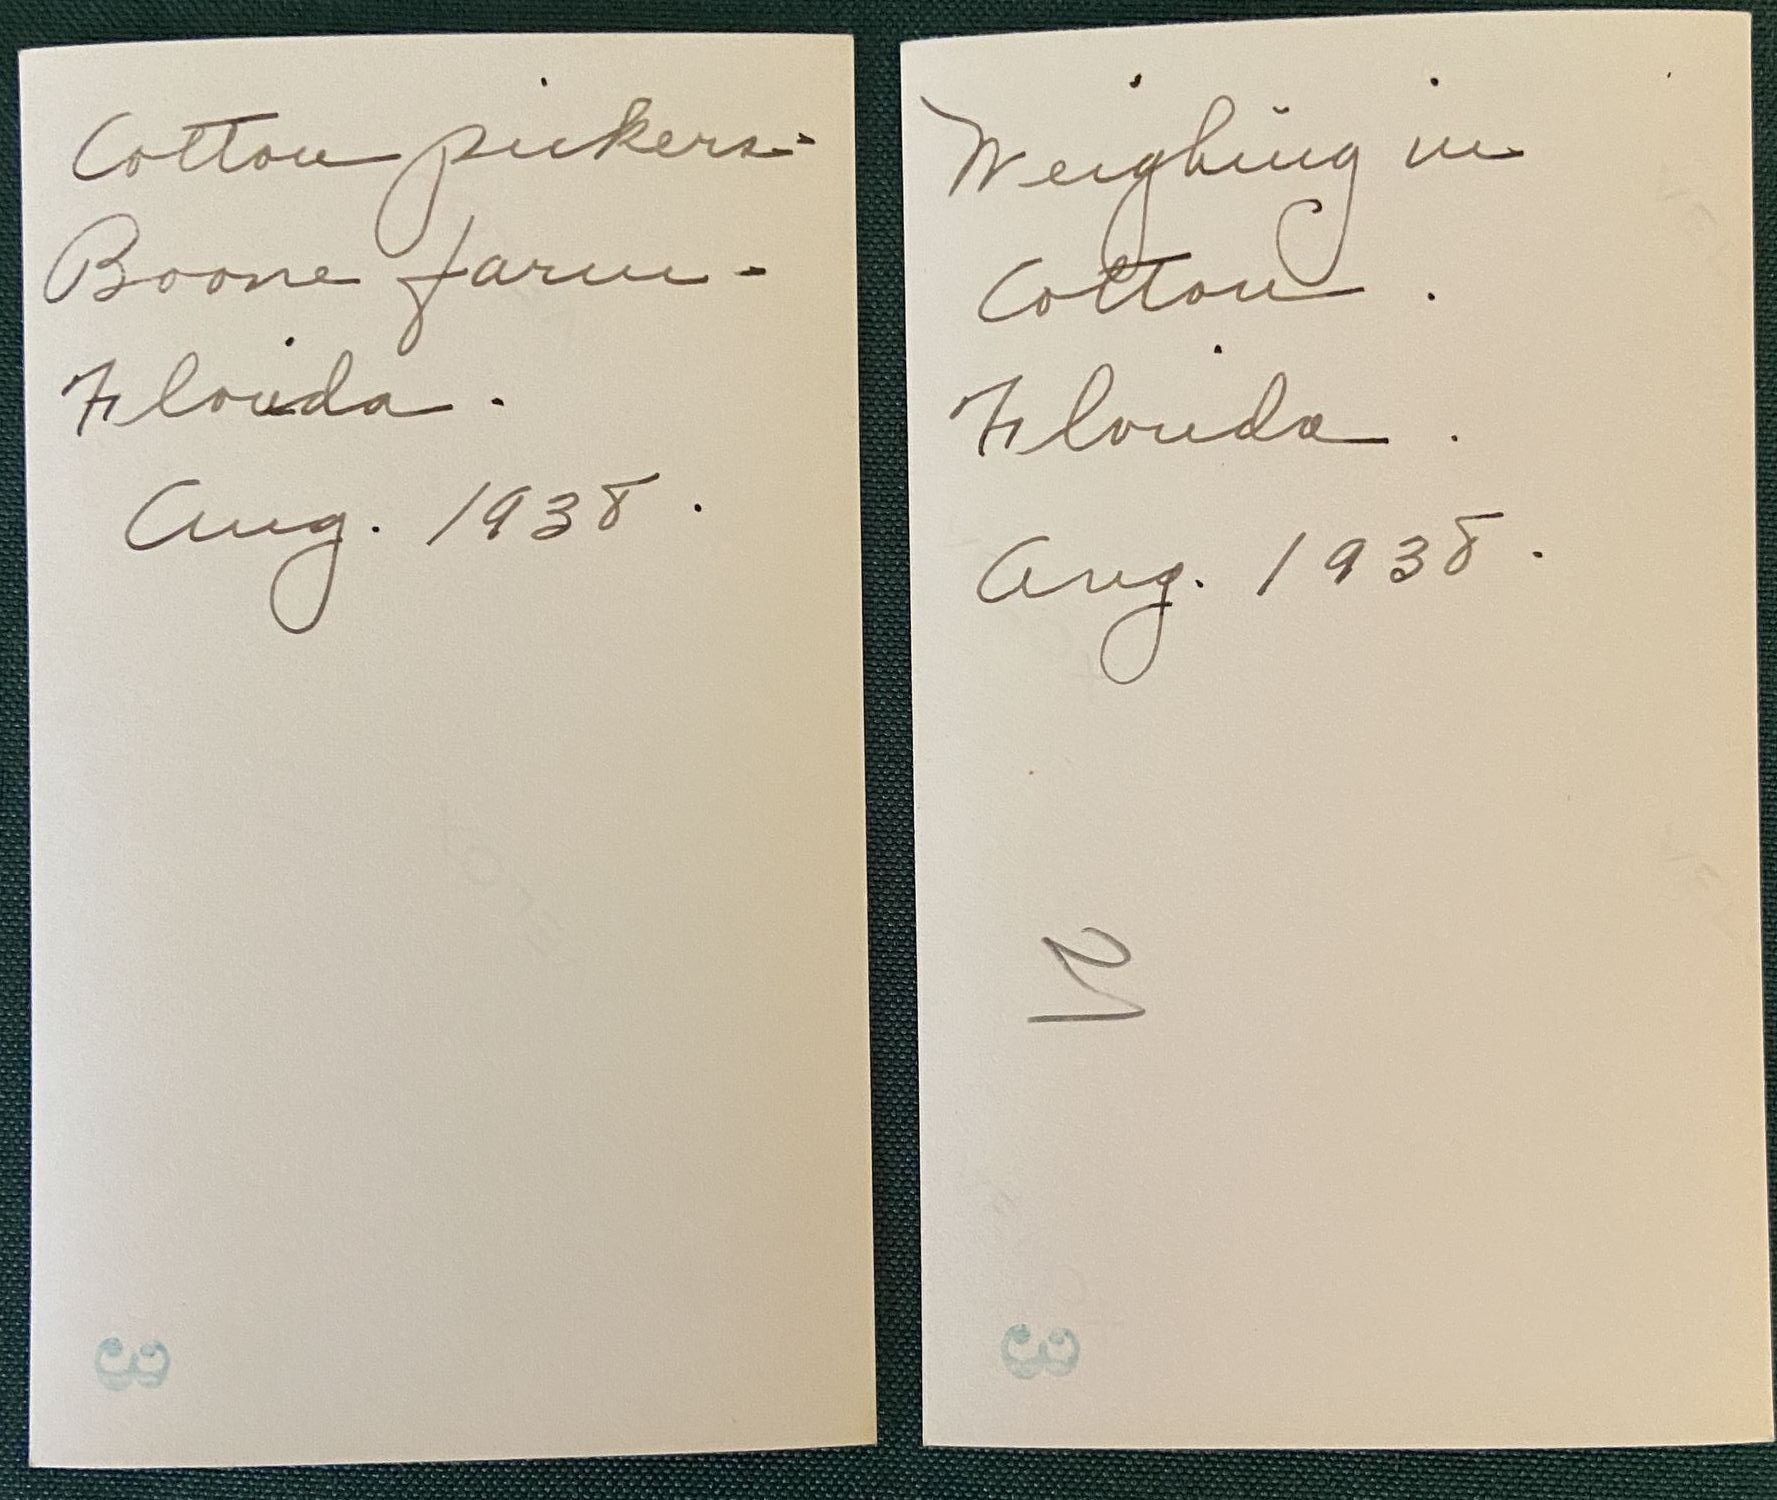 Cotton pickers -
Boone farm -
Florida.
Aug. 1938.
3
Weighing in
Cotton.
Florida.
Aug. 1938.
21
3